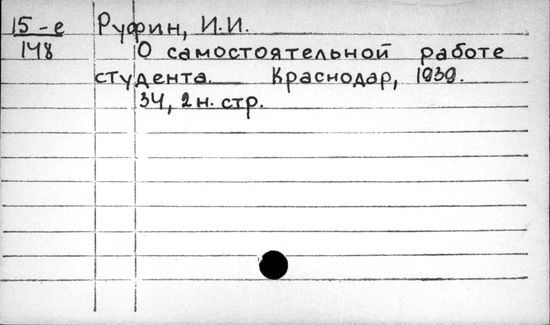 15-е Руфин, И.И.
148 О самостоятельной работе
студента. Краснодар, 1939.
34, 2 н. стр.